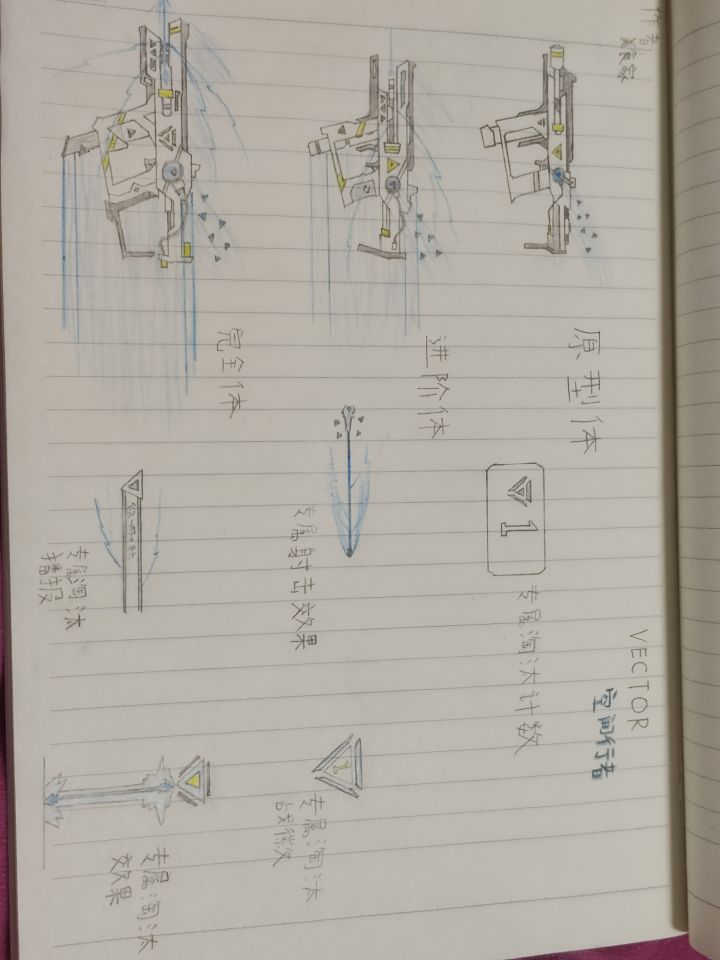 作者:
美食家
VECTOR
空间行者
原型体
进阶体
完全体
1
专属淘汰计数
专属射击效果
专属淘汰
播报
1
专属淘汰
战徽
专属淘汰
效果